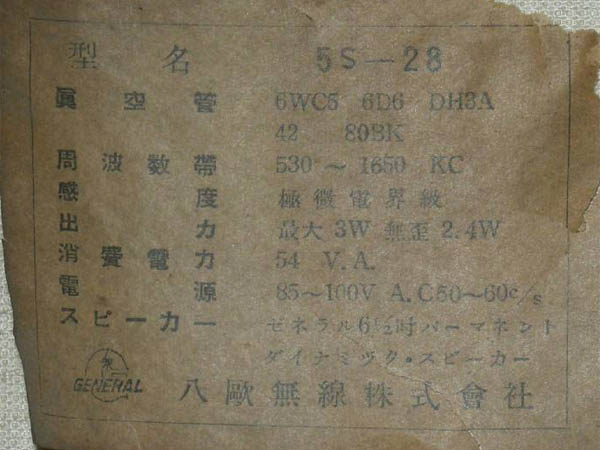 型名 5S-28
眞空管 6WC5 6D6 DH3A
42 80BK
周波数帯 530～1650 KC
感度 極微電界級
出力 最大3W 無歪2.4W
消費電力 54 V.A.
電源 85～100V A.C50～60c/s
スピーカー ゼネラル6½吋パーマネント
ダイナミック・スピーカー
GENERAL 八歐無線株式會社